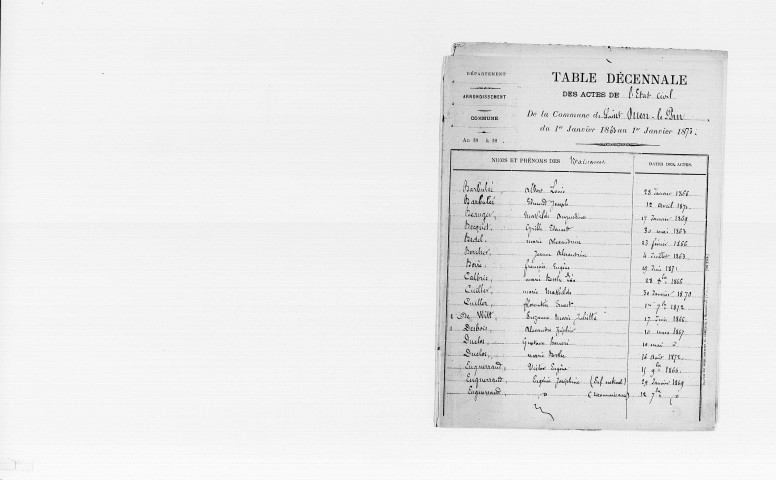 DÉPARTEMENT
ARRONDISSEMENT
COMMUNE
An 18 à 18
TABLE DÉCENNALE
DES ACTES DE l'Etat civil
De la Commune de Saint Ouen-le-Pin
du 1er Janvier 1863 au 1er Janvier 1873.
NOMS ET PRÉNOMS DES Naissances DATES DES ACTES.
Barbulée, Albert Louis 28 Janvier 1866
Barbulée Edmond Joseph 12 Avril 1871
Beranger, Mathilde Augustine 17 Janvier 1868
Becquet, Cyrille Edouard 30 mai 1863
Bedel, marie Alexandrine 23 février 1866
Bordier, Jeanne Alexandrine 4 Juillet 1863
françois Eugène 29 Juin 1871
marie 28 1866
Cuillier, marie Mathilde 30 Janvier 1870
Cuillier, florentin Ernest 1er 7bre 1872
De Witt, Suzanne Marie Juliette 17 Juin 1866
Desbois, Alexandre 10 mars 1867
Duclos, Gustave 10 mai d°
Duclos, marie 16 Août 1872
Enguerrand, Victor Eugène 15 9bre 1866
Enguerrand, Eugénie Joséphine (Enf. naturel) 29 Janvier 1869
Enguerrand, d° (reconnaissance) 12 7bre d°